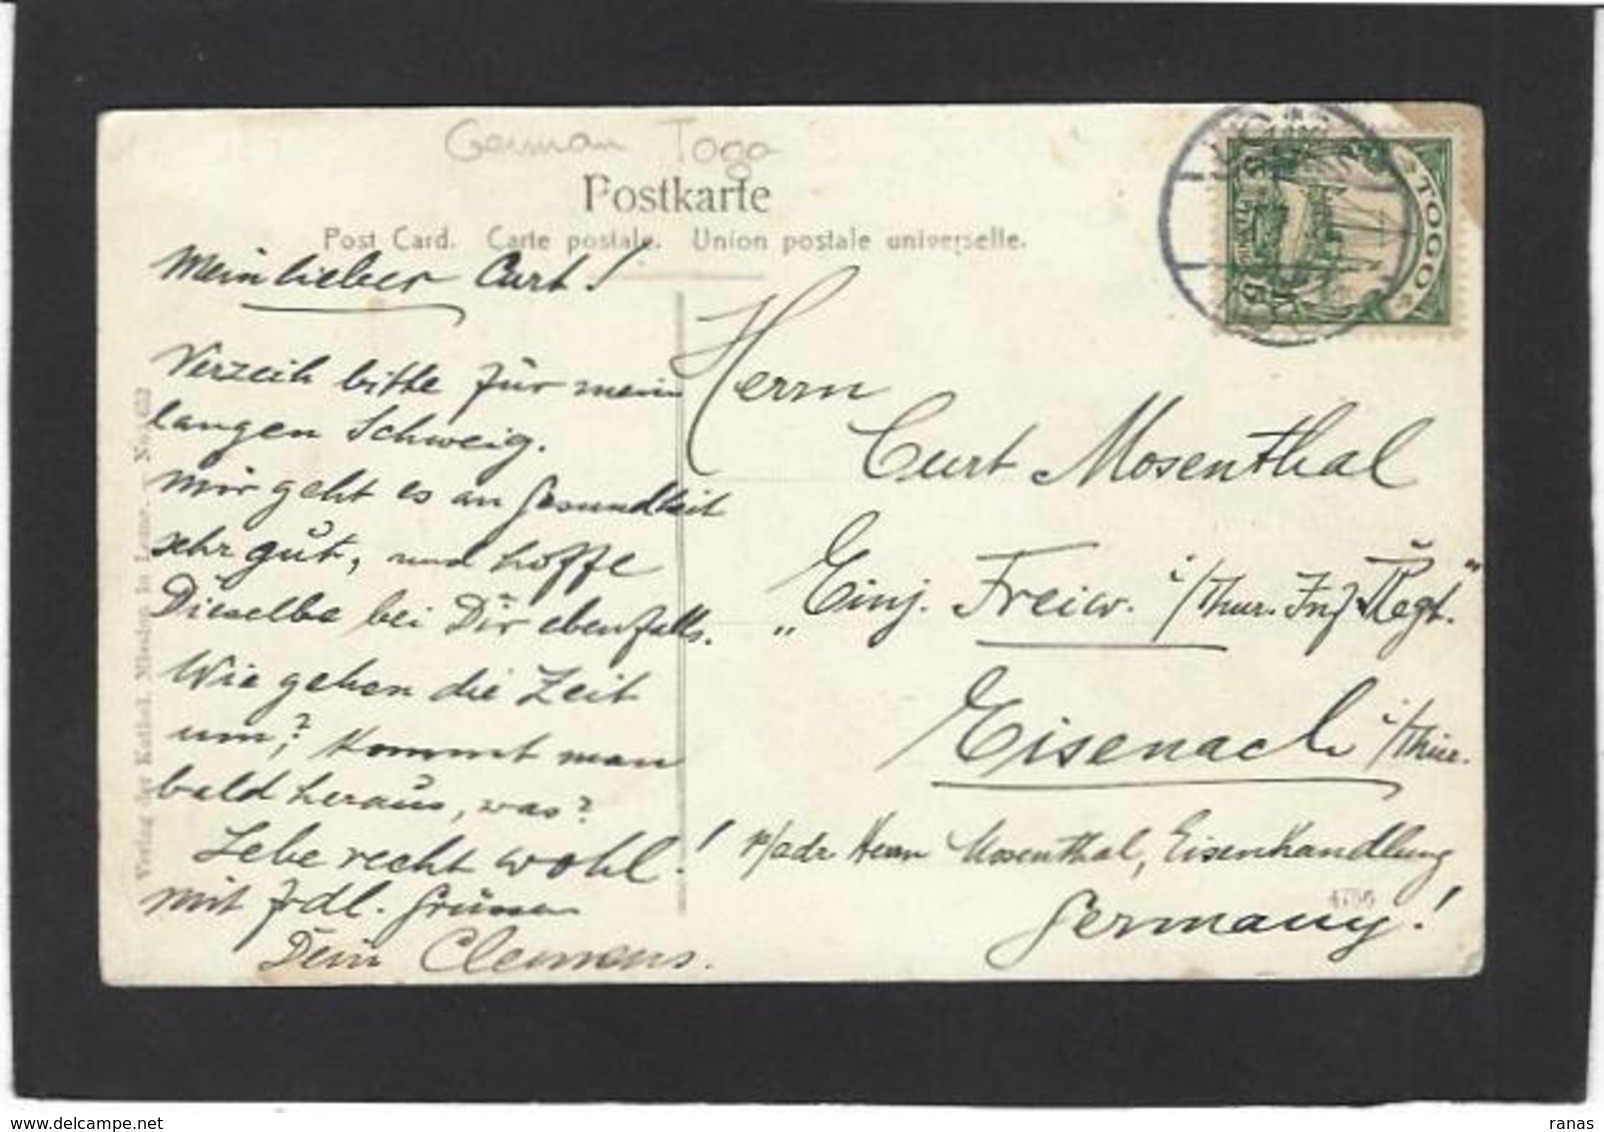 German Togo
Postkarte
Post Card. Carte postale. Union postale universelle.
TOGO
Mein lieber Curt!
Verzeih bitte für mein
langen Schweig.
Mir geht es an Gesundheit
sehr gut, und hoffe
Dieselbe bei Dir ebenfalls.
Wie gehen die Zeit
um? Kommt man
bald heraus, was?
Lebe recht wohl!
mit frdl. Grüssen
Dein Clemens.
Herrn
Curt Mosenthal
„Einj. Freiw. i/Thür. Inf. Regt."
Eisenach i/Thür.
p/adr. Herrn Mosenthal, Eisenhandlung
Germany!
Verlag der Kathol. Mission in Lome.
ranas
delcampe.net